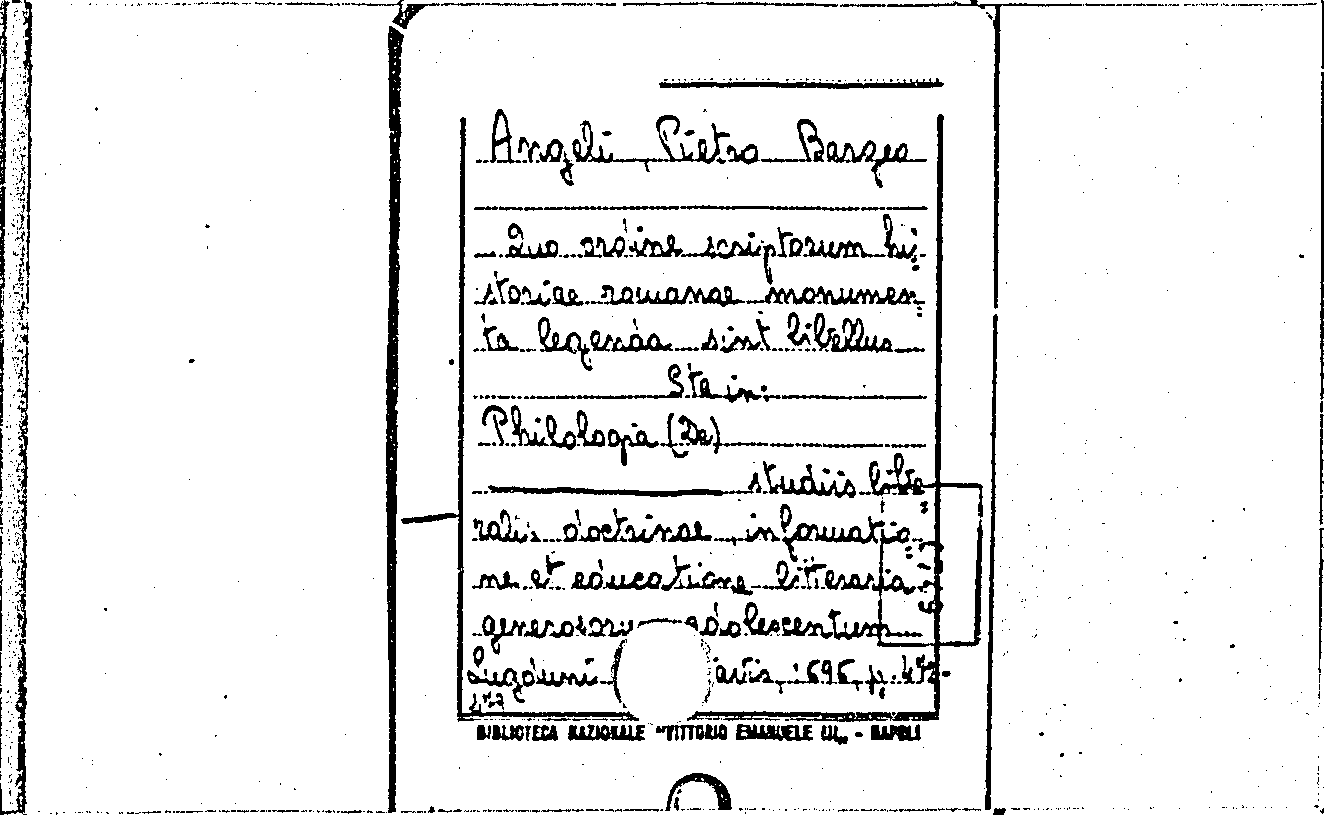 Angeli, Pietro Bargeo
Quo ordine scriptorum hi=
storiae romanae monumen=
ta legenda sint libellus
Sta in:
Philologia (De)
studiis libe=
ralis doctrinae, informatio=
ne et educatione litteraria
generosorum adolescentum
Lugduni 1696, p. 472-
477
BIBLIOTECA NAZIONALE "VITTORIO EMANUELE III„ - NAPOLI